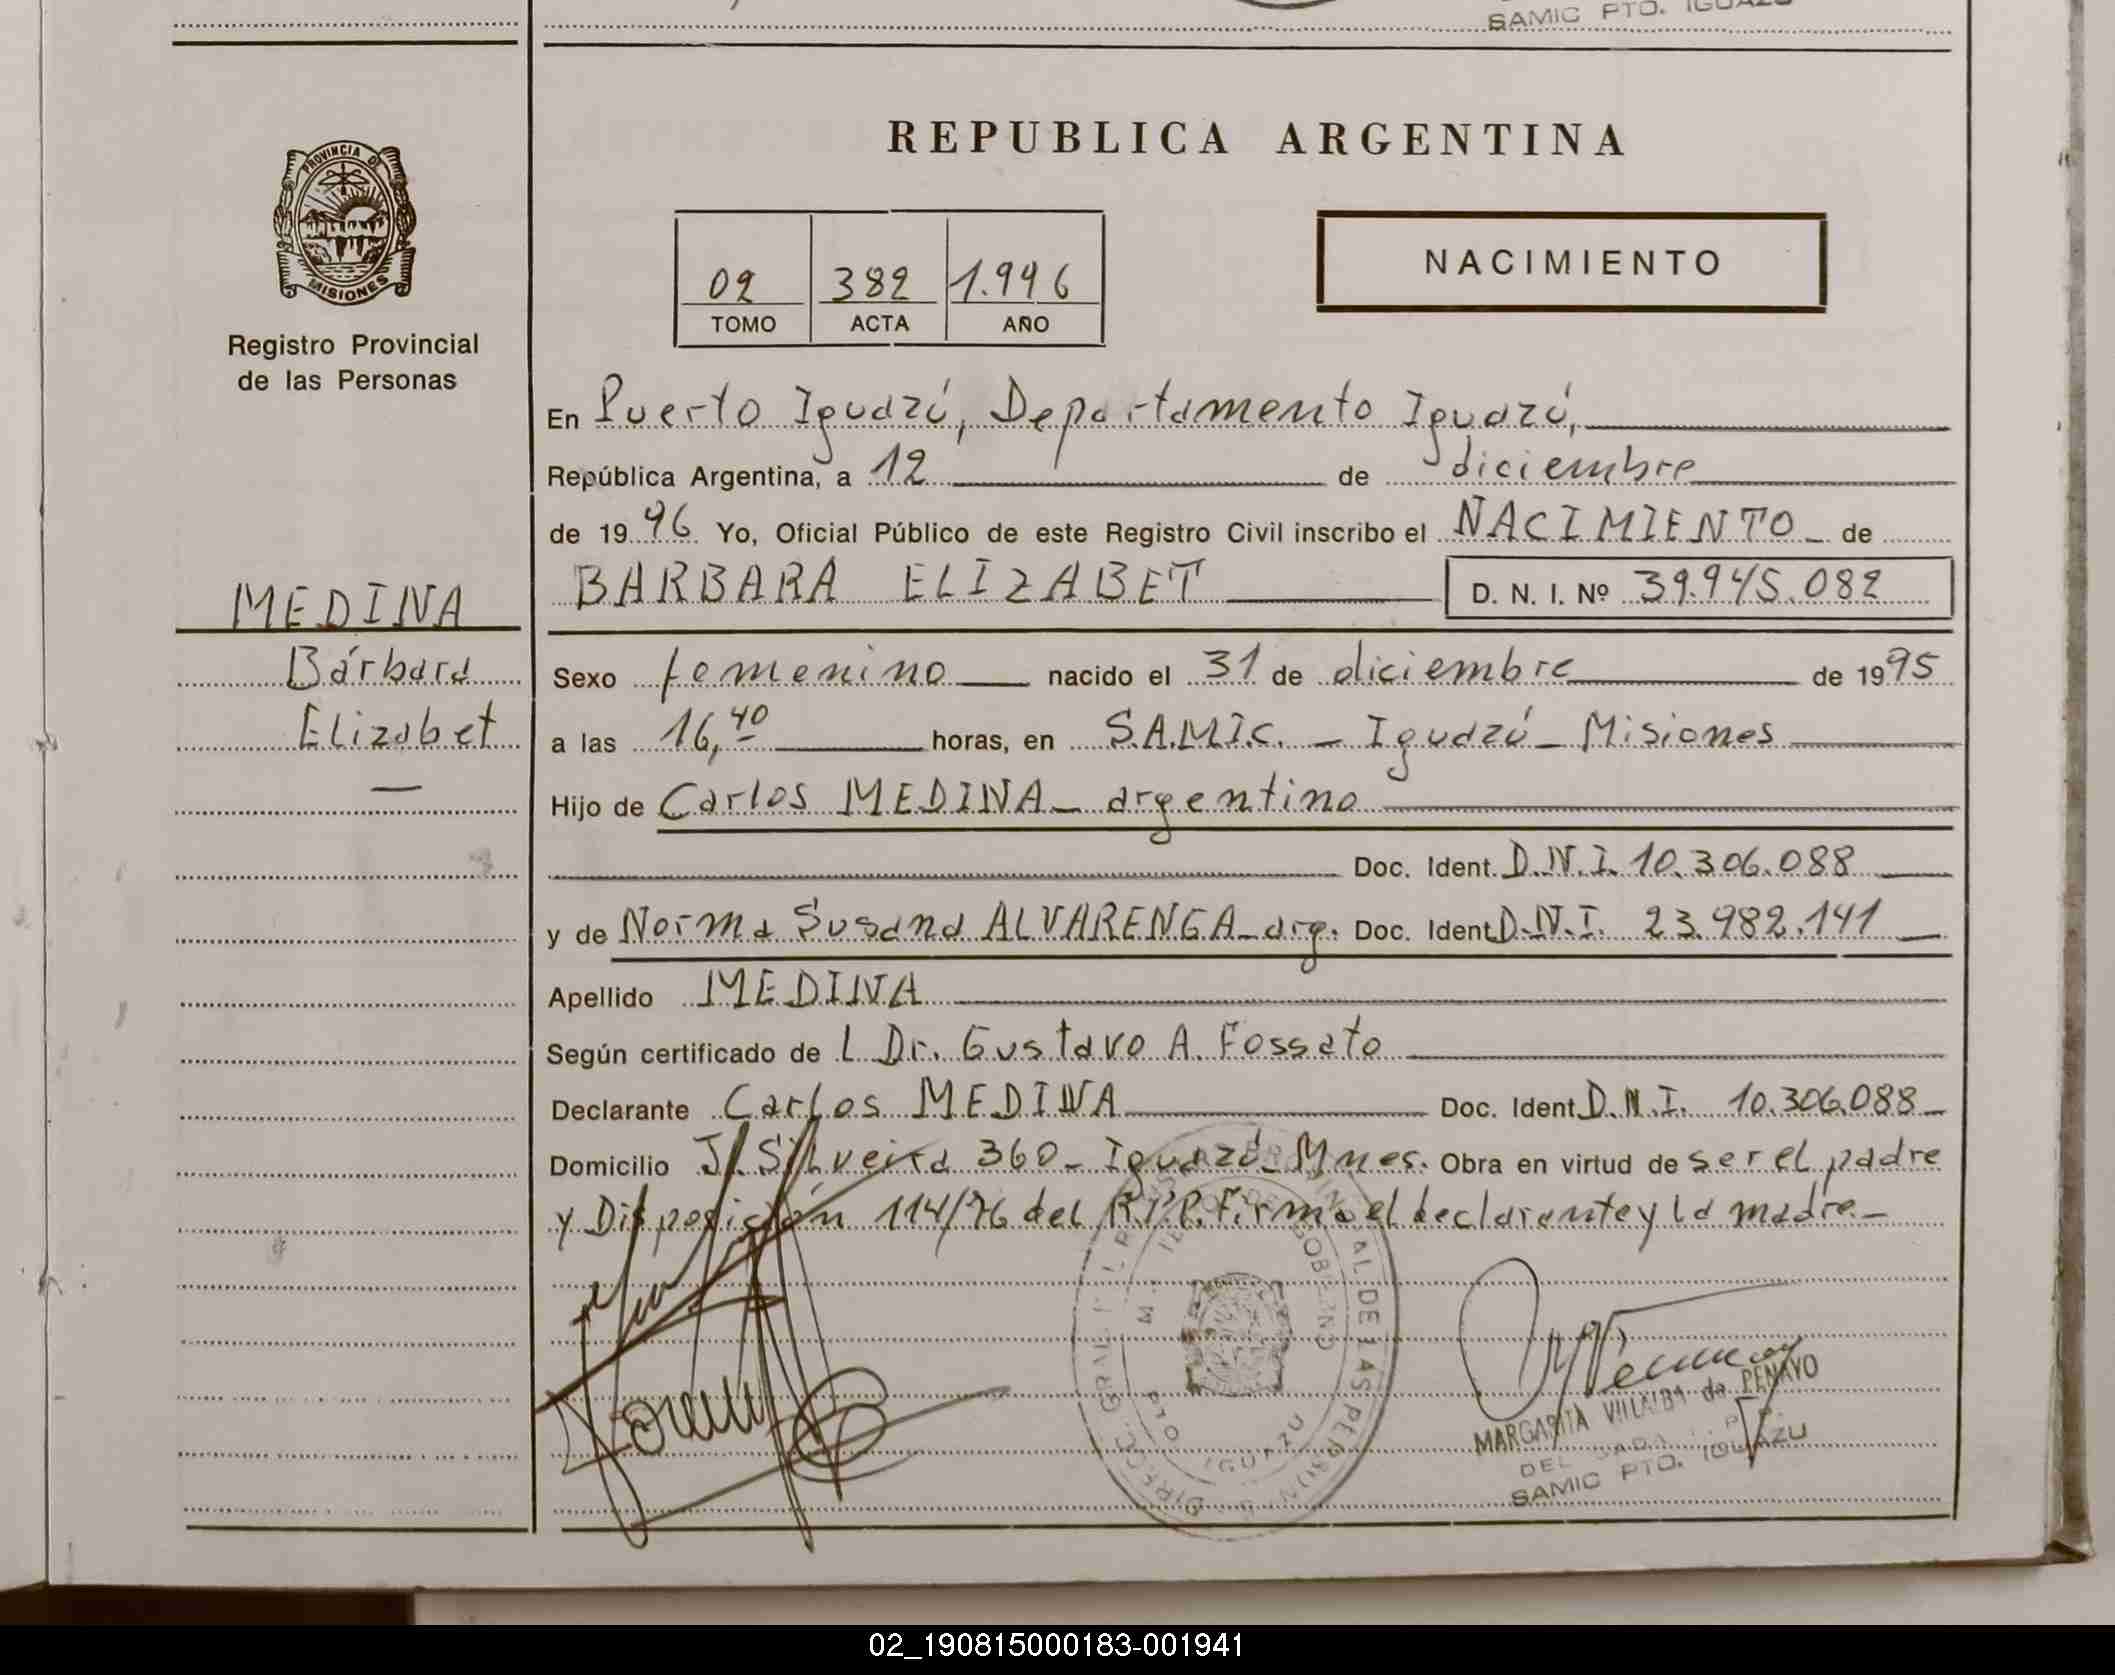 SAMIC PTO. IGUAZU
PROVINCIA DE
MISIONES
Registro Provincial
de las Personas
MEDINA
Bárbara
Elizabet
—
REPUBLICA ARGENTINA
02 382 1.996
TOMO ACTA AÑO
NACIMIENTO
En Puerto Iguazú, Departamento Iguazú,
República Argentina, a 12 de diciembre
de 1996 Yo, Oficial Público de este Registro Civil inscribo el NACIMIENTO de
BARBARA ELIZABET D. N. I. Nº 39.945.082
Sexo femenino nacido el 31 de diciembre de 1995
a las 16,40 horas, en S.A.M.I.C. - Iguazú - Misiones
Hijo de Carlos MEDINA - argentino
Doc. Ident. D.N.I. 10.306.088
y de Norma Susana ALVARENGA - arg. Doc. Ident D.N.I. 23.982.141
Apellido MEDINA
Según certificado de L Dr. Gustavo A. Fossato
Declarante Carlos MEDINA Doc. Ident D.N.I. 10.306.088
Domicilio J. Silveira 360 - Iguazú - Mnes. Obra en virtud de ser el padre
y Disposición 114/76 del R.P.P. Firma el declarante y la madre -
MARGARITA VILLALBA de PENAYO
SAMIC PTO. IGUAZU
02_190815000183-001941